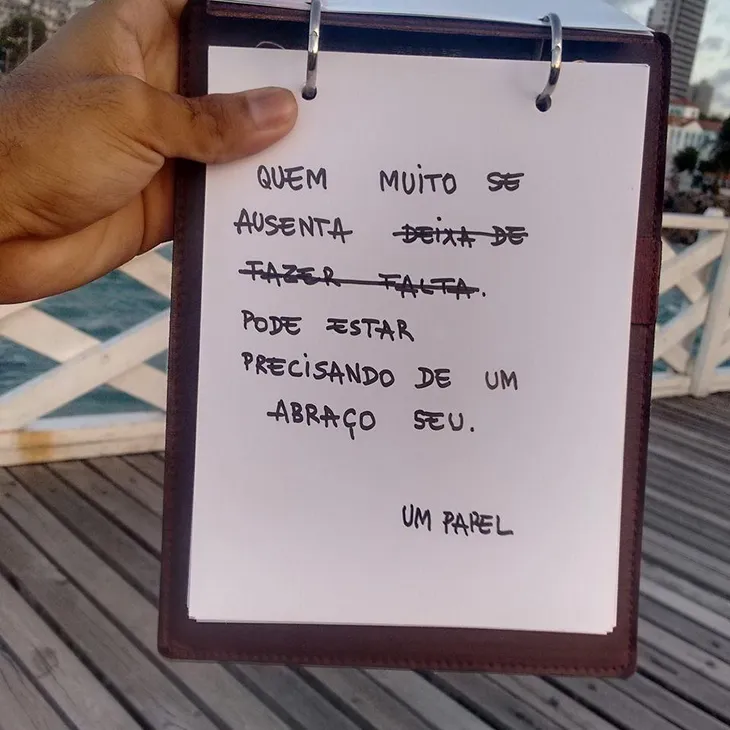 QUEM MUITO SE
AUSENTA DEIXA DE
FAZER FALTA.
PODE ESTAR
PRECISANDO DE UM
ABRAÇO SEU.
UM PAPEL